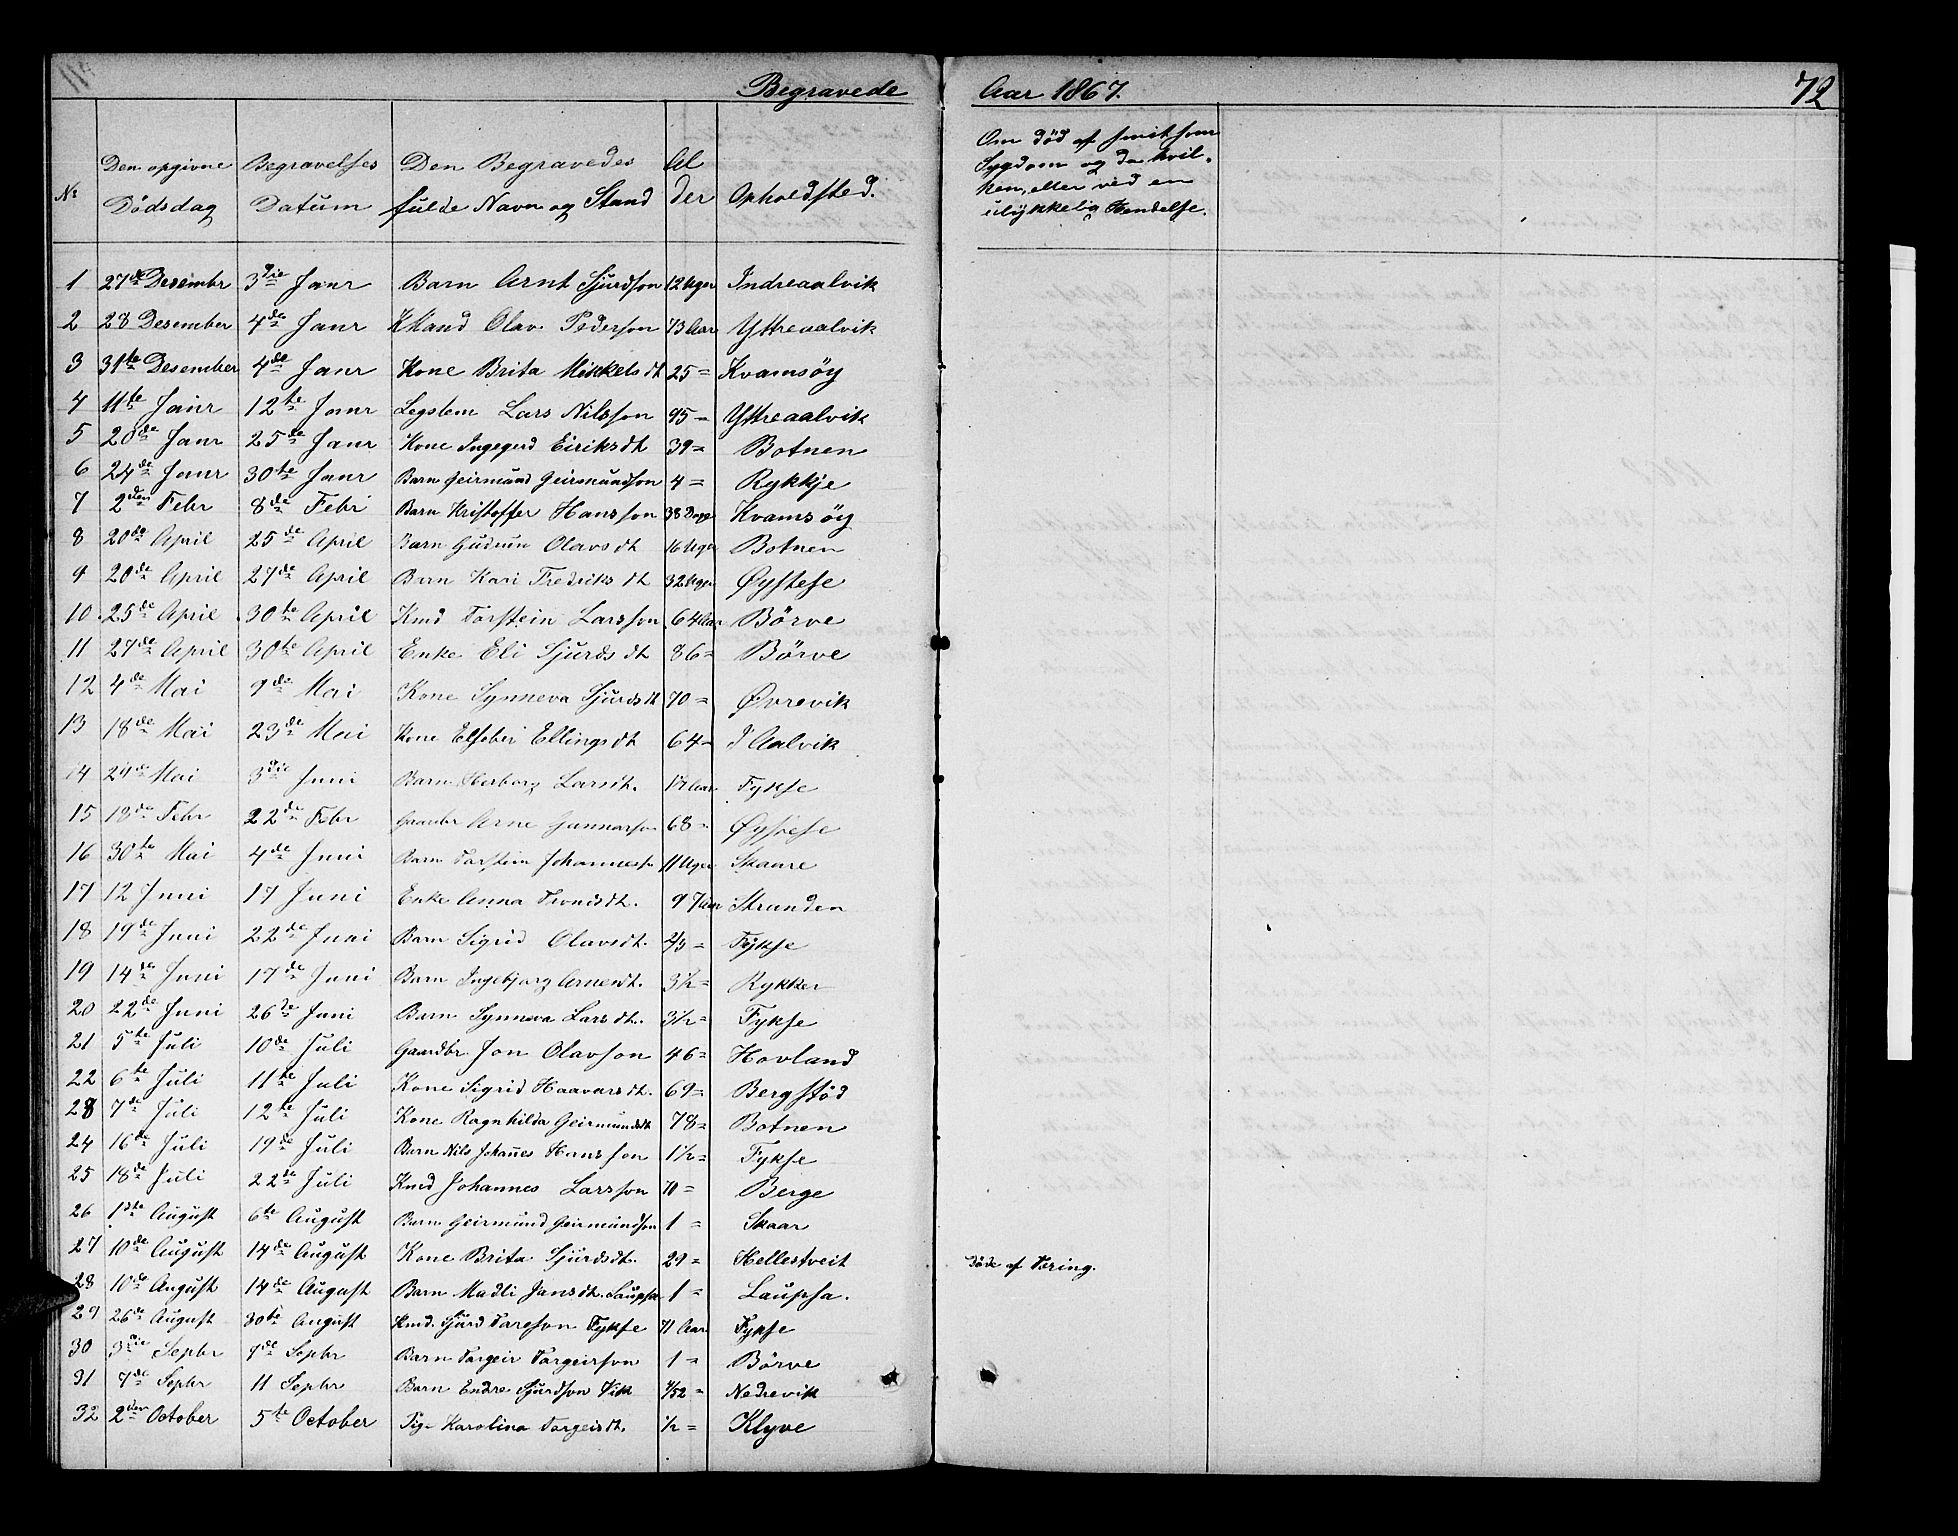 Begravede Aar 1867. 72
No Den opgivne Dödsdag Begravelses Datum Den Begravedes fulde Navn og Stand Alder Opholdsted. Om död af smitsom Sygdom og da hvilken, eller ved en ulykkelig Hendelse.
1 27de Desembr 3die Janr Barn Arnt Sjurdson 12 Uger Indreaalvik
2 28 Desember 4de Janr KMand Olav Pederson 73 Aar Yttreaalvik
3 31te Desember 4de Janr Kone Brita Mikkelsdt 25 = Kvamsöy
4 11te Janr 12te Janr Legslem Lars Nilsson 95 = Yttreaalvik
5 20de Janr 25de Janr Kone Ingegerd Eiriksdt 39 = Botnen
6 24de Janr 30te Janr Barn Geirmund Geirmundson 4 = Rykkje
7 2den Febr 8de Febr Barn Kristoffer Hansson 38 Dage Kvamsöy
8 20de April 25de April Barn Gudrun Olavsdt 16 Uger Botnen
9 20de April 27de April Barn Kari Fredriksdt 32 Uger Øystese
10 25de April 30te April Kmd Torstein Larsson 64 Aar Börve
11 27de April 30te April Enke Eli Sjurdsdt 86 = Börve
12 4de Mai 9de Mai Kone Synneva Sjurdsdt 70 = Øvrevik
13 18de Mai 23de Mai Kone Elsebei Ellingsdt 64 = I Aalvik
14 29de Mai 3die Juni Barn Herborg Larsdt. Aar Fykse
15 18de Febr 22de Febr Gaardbr Arne Gunnarson 68 = Øystese
16 30te Mai 4de Juni Barn Torstein Johanness. 11 Uger Skaare
17 12 Juni 17 Juni Enke Anna Trondsdt. 9 Stranden
18 19de Juni 22de Juni Barn Sigrid Olavsdt. 2/3 = Fykse
19 14de Juni 17de Juni Barn Ingebjorg Arnesdt. 3½ = Rykker
20 22de Juni 26de Juni Barn Synneva Larsdt. 3½ = Fykse
21 5te Juli 10de Juli Gaardbr. Jon Olavson 46 = Hovland
22 6te Juli 11te Juli Kone Sigrid Haavarsdt. 69 = Bergstöd
23 7de Juli 12te Juli Kone Ragnhilda Geirmundsdt 78 = Botnen
24 16de Juli 19de Juli Barn Nils Johanes Hansson 1½ = Fykse
25 18de Juli 22de Juli Kmd Johannes Larsson 70 = Berge
26 1ste August 6te August Barn Geirmund Geirmundson 1 = Skaar
27 10de August 14de August Kone Brita Sjurdsdt. 29 = Hellestveit Döde af Tæring.
28 10de August 14de August Barn Madli Jansdt. Laupsa 1 = Laupsa.
29 26de August 30te August Kmd. Sjurd Tareson Fykse 71 Aar Fykse
30 3die Septbr 9de Septbr Barn Torgeir Torgeirson 1 = Börve
31 7de Septbr 11 Septbr Barn Endre Sjurdson Vik 4/52 = Nedrevik
32 2den October 5te October Pig- Karolina Torgeisdt. ½ = Klyve